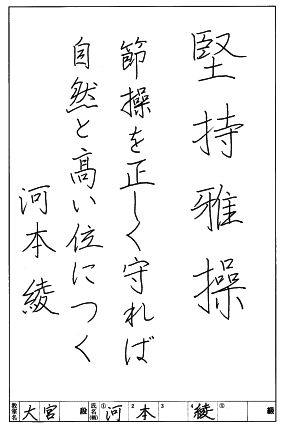 堅持雅操
節操を正しく守れば
自然と高い位につく
河本綾
教室名 大宮 段 氏名(号) ① 河 2 本 3 4 綾 ⑤ 級